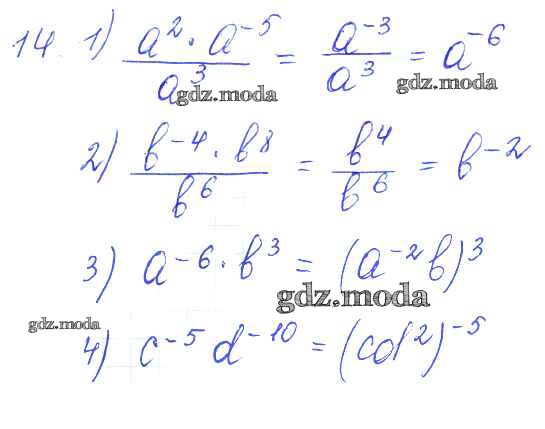 14. 1) a² · a⁻⁵ / a³ = a⁻³ / a³ = a⁻⁶
gdz.moda gdz.moda
2) b⁻⁴ · b⁸ / b⁶ = b⁴ / b⁶ = b⁻²
3) a⁻⁶ · b³ = (a⁻²b)³
gdz.moda
gdz.moda
4) c⁻⁵ d⁻¹⁰ = (cd²)⁻⁵